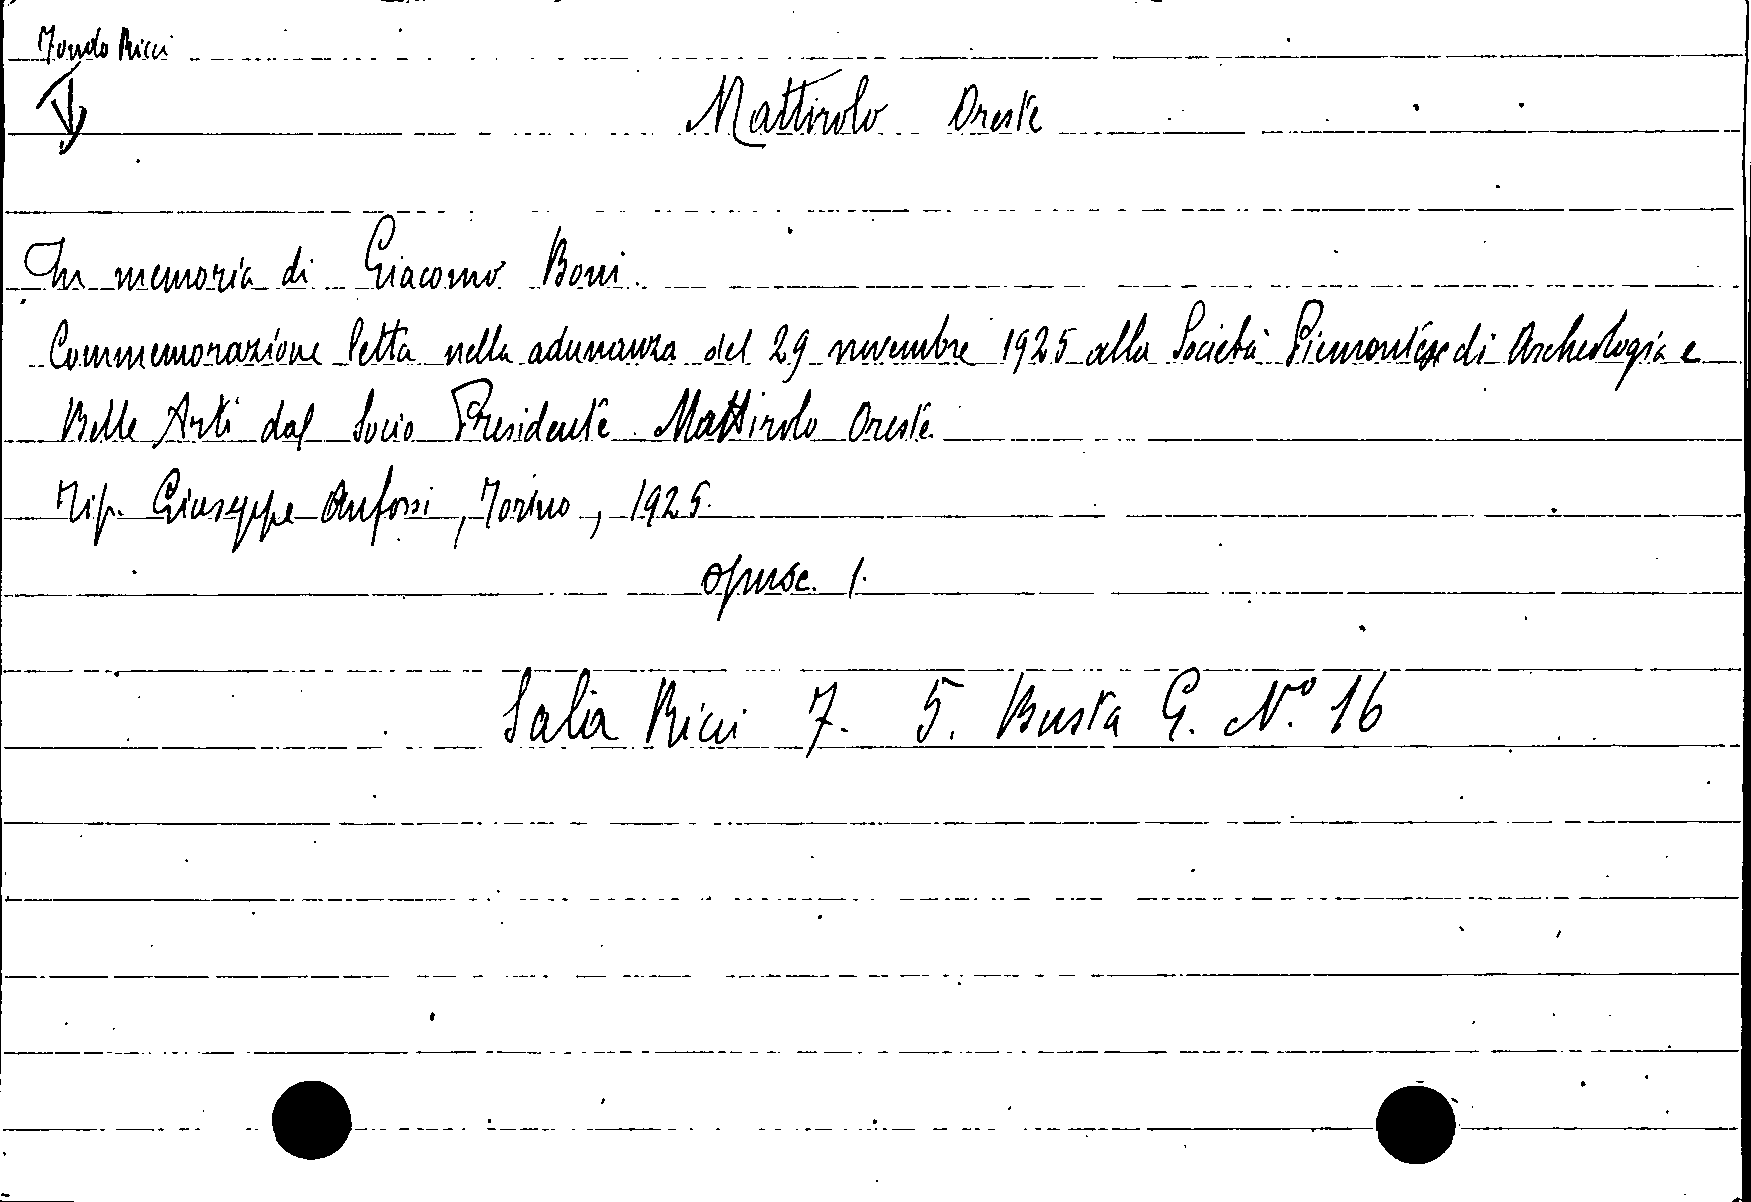 Fondo Ricci
Mattirolo Oreste
In memoria di Giacomo Boni.
Commemorazione letta nella adunanza del 29 novembre 1925 alla Società Piemontese di Archeologia e
Belle Arti dal Socio Presidente Mattirolo Oreste.
Tip. Giuseppe Anfossi, Torino, 1925.
opusc. 1.
Sala Ricci 7. 5. Busta G. N.º 16